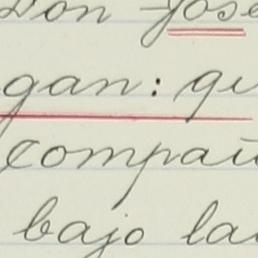 Don José
gan: qu
compañ
bajo la